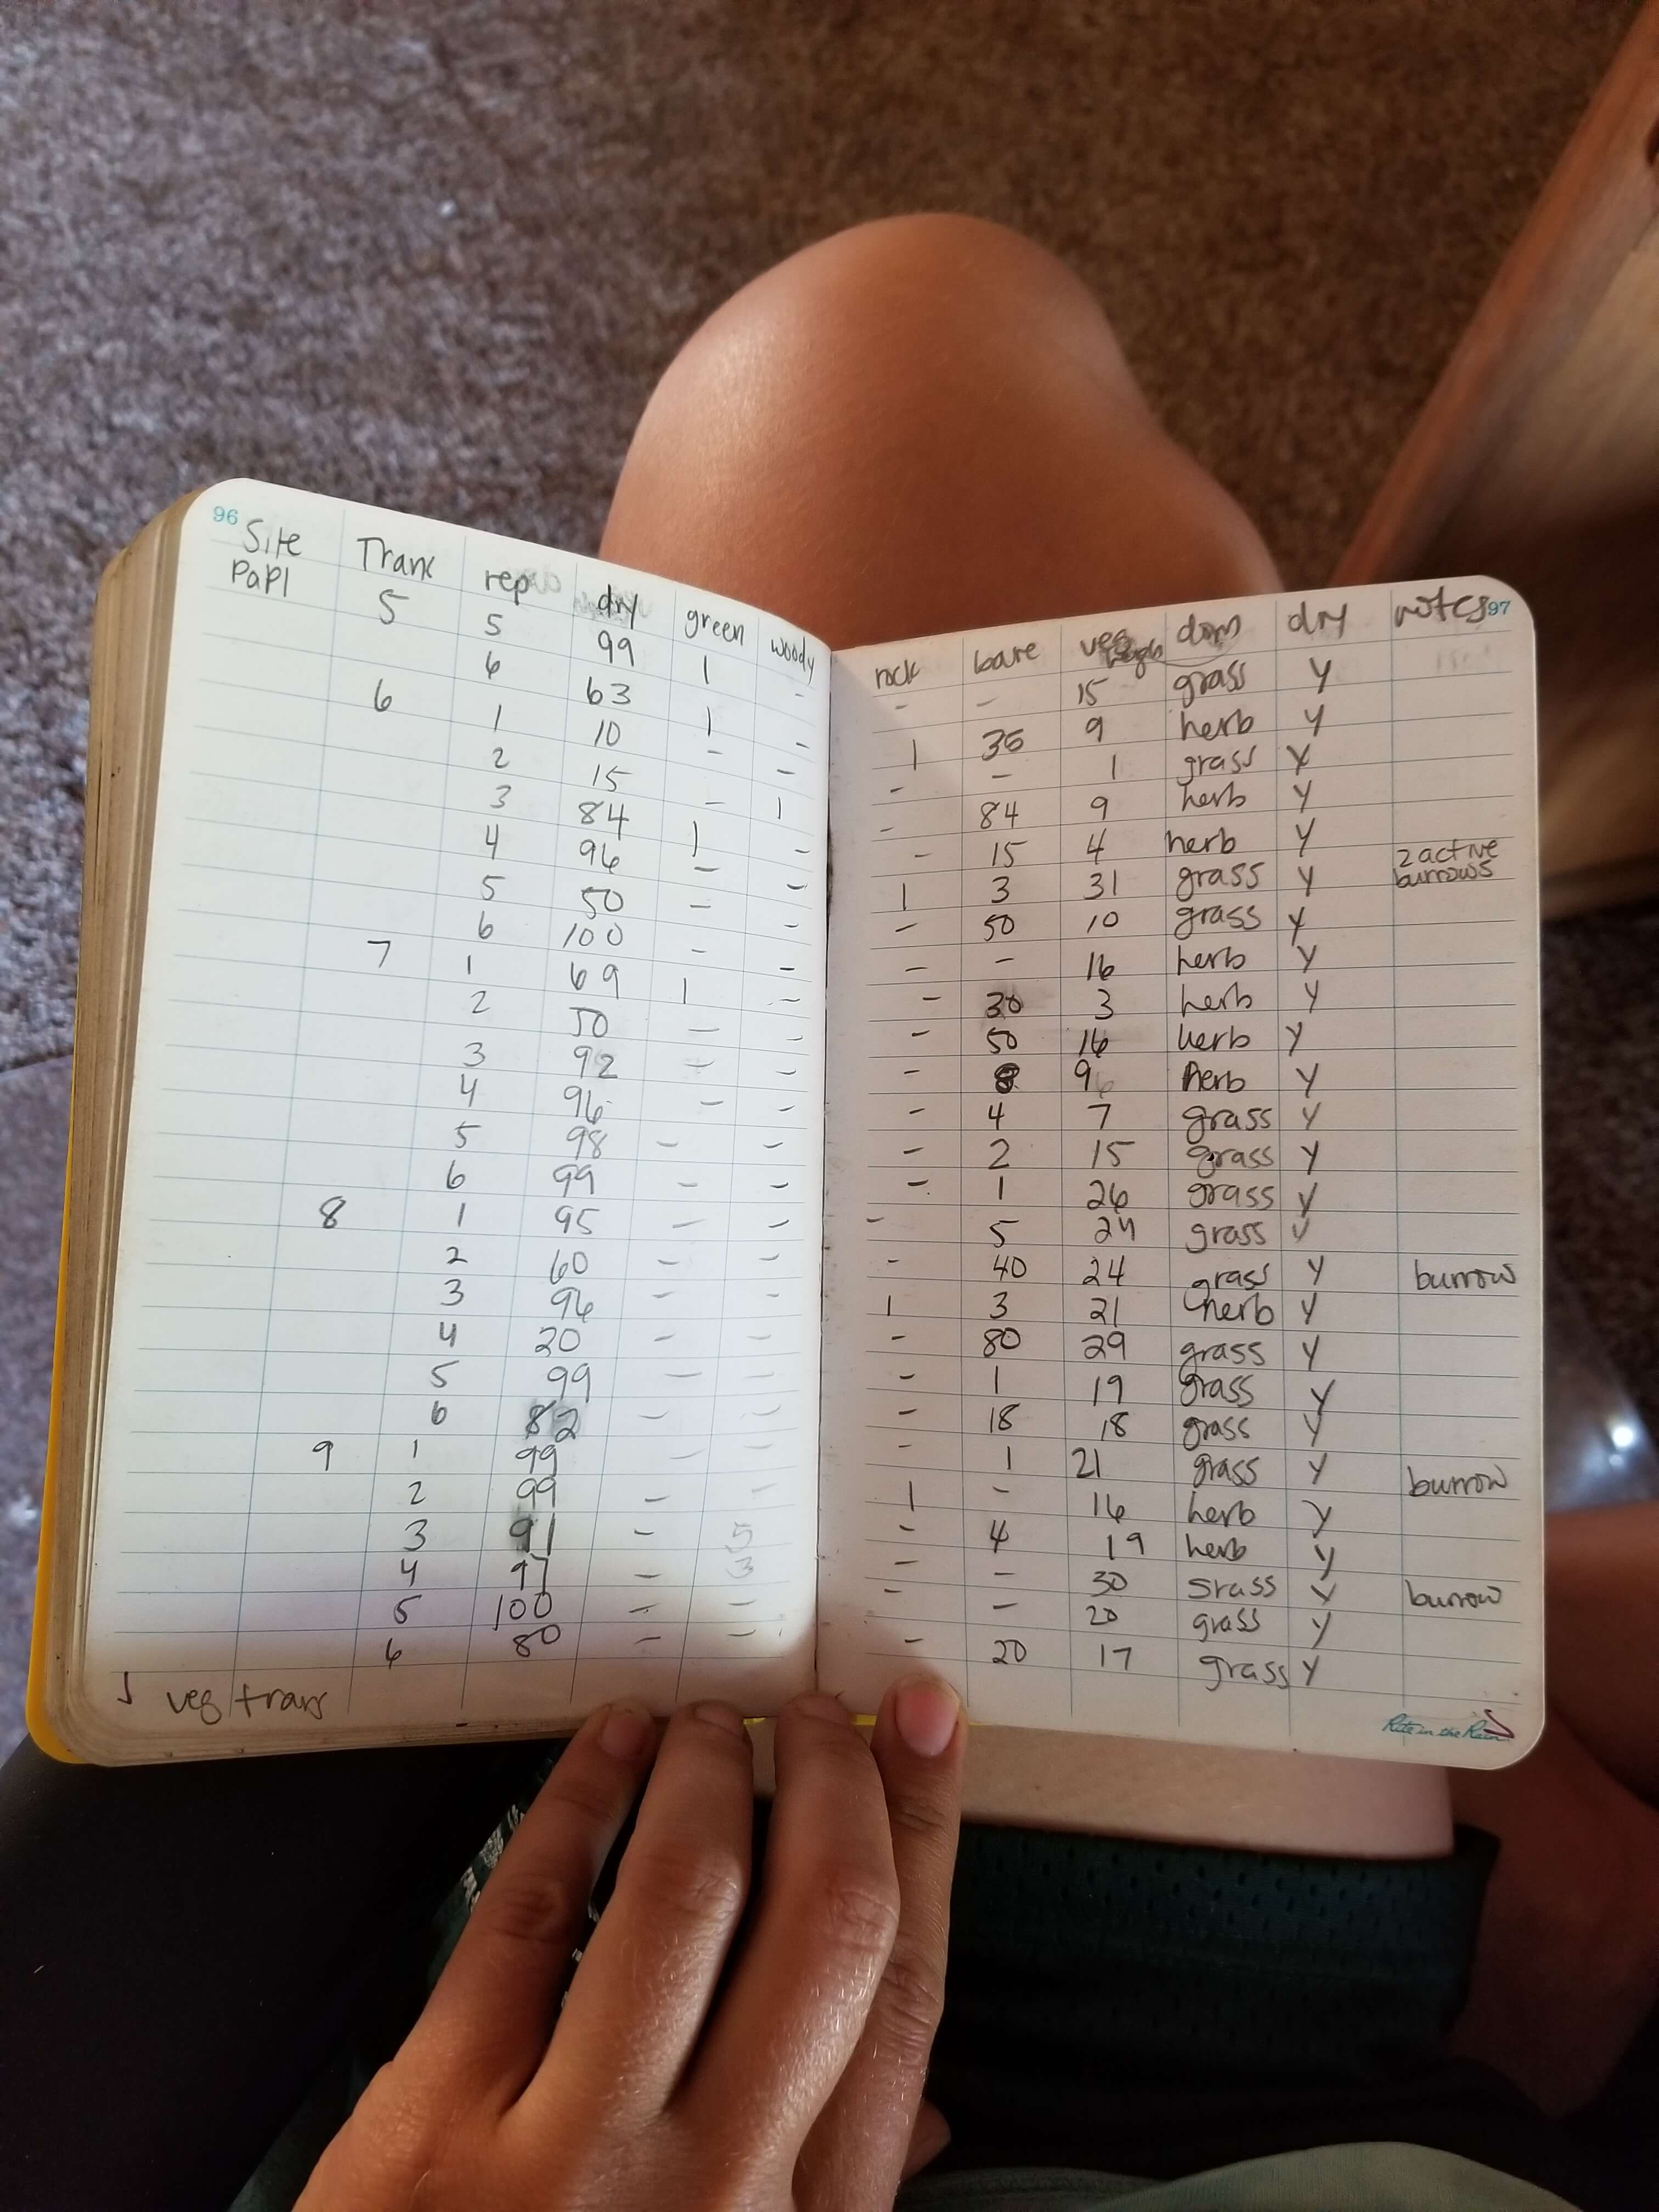 96
Site Tranc rep dry green woody
PaPl
5 5 99 1 -
6 63 1 -
6 1 10 - -
2 15 - 1
3 84 1 -
4 96 - -
5 50 - -
6 100 - -
7 1 69 1 -
2 50 - -
3 92 - -
4 96 - -
5 98 - -
6 99 - -
8 1 95 - -
2 60 - -
3 96 - -
4 20 - -
5 99 - -
6 82 - -
9 1 99 - -
2 99 - -
3 91 - 5
4 97 - 3
5 100 - -
6 80 - -
veg trans
97
rock bare veg dom dry notes
- - 15 grass y
1 36 9 herb y
- - 1 grass y
- 84 9 herb y
- 15 4 herb y
1 3 31 grass y 2 active burrows
- 50 10 grass y
- - 16 herb y
- 30 3 herb y
- 50 16 herb y
8 9 herb y
- 4 7 grass y
- 2 15 grass y
- 1 26 grass y
- 5 24 grass y
- 40 24 grass y burrow
1 3 21 herb y
- 80 29 grass y
- 1 19 grass y
- 18 18 grass y
- 1 21 grass y burrow
1 - 16 herb y
- 4 19 herb y
- - 30 grass y burrow
- - 20 grass y
- 20 17 grass y
Rite in the Rain